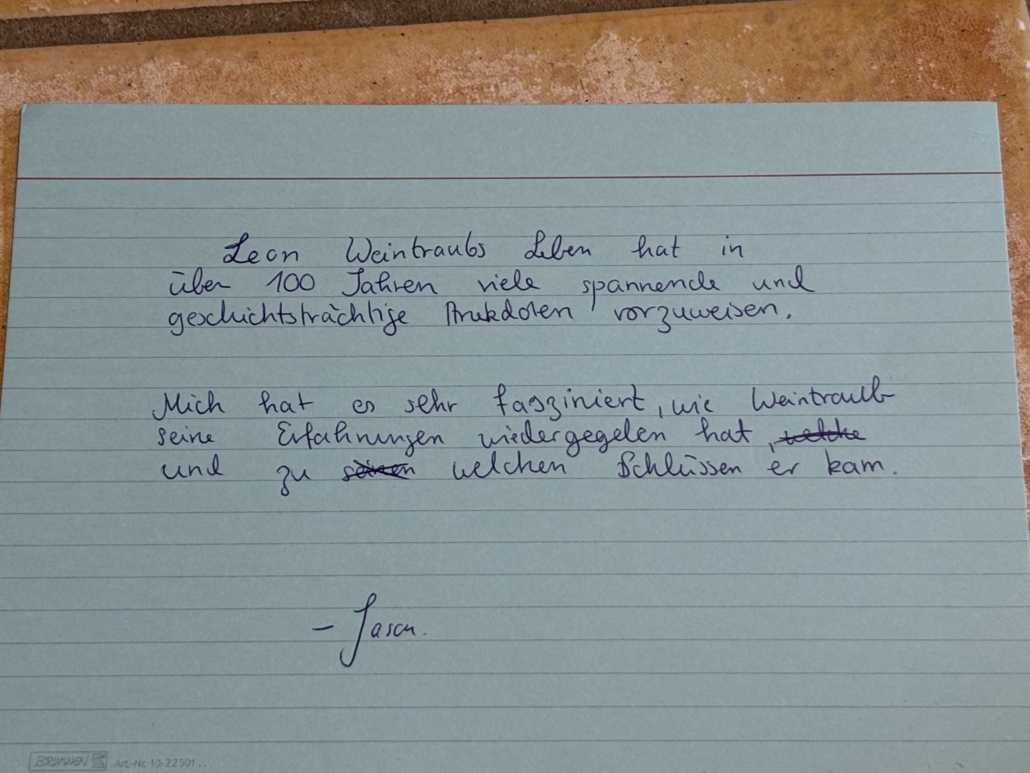 Leon Weintraubs Leben hat in
über 100 Jahren viele spannende und
geschichtsträchtige Anekdoten vorzuweisen.
Mich hat es sehr fasziniert, wie Weintraub
seine Erfahrungen wiedergegeben hat, welche
und zu seinen welchen Schlüssen er kam.
– Jason.
BRUNNEN Art.-Nr. 10-22501